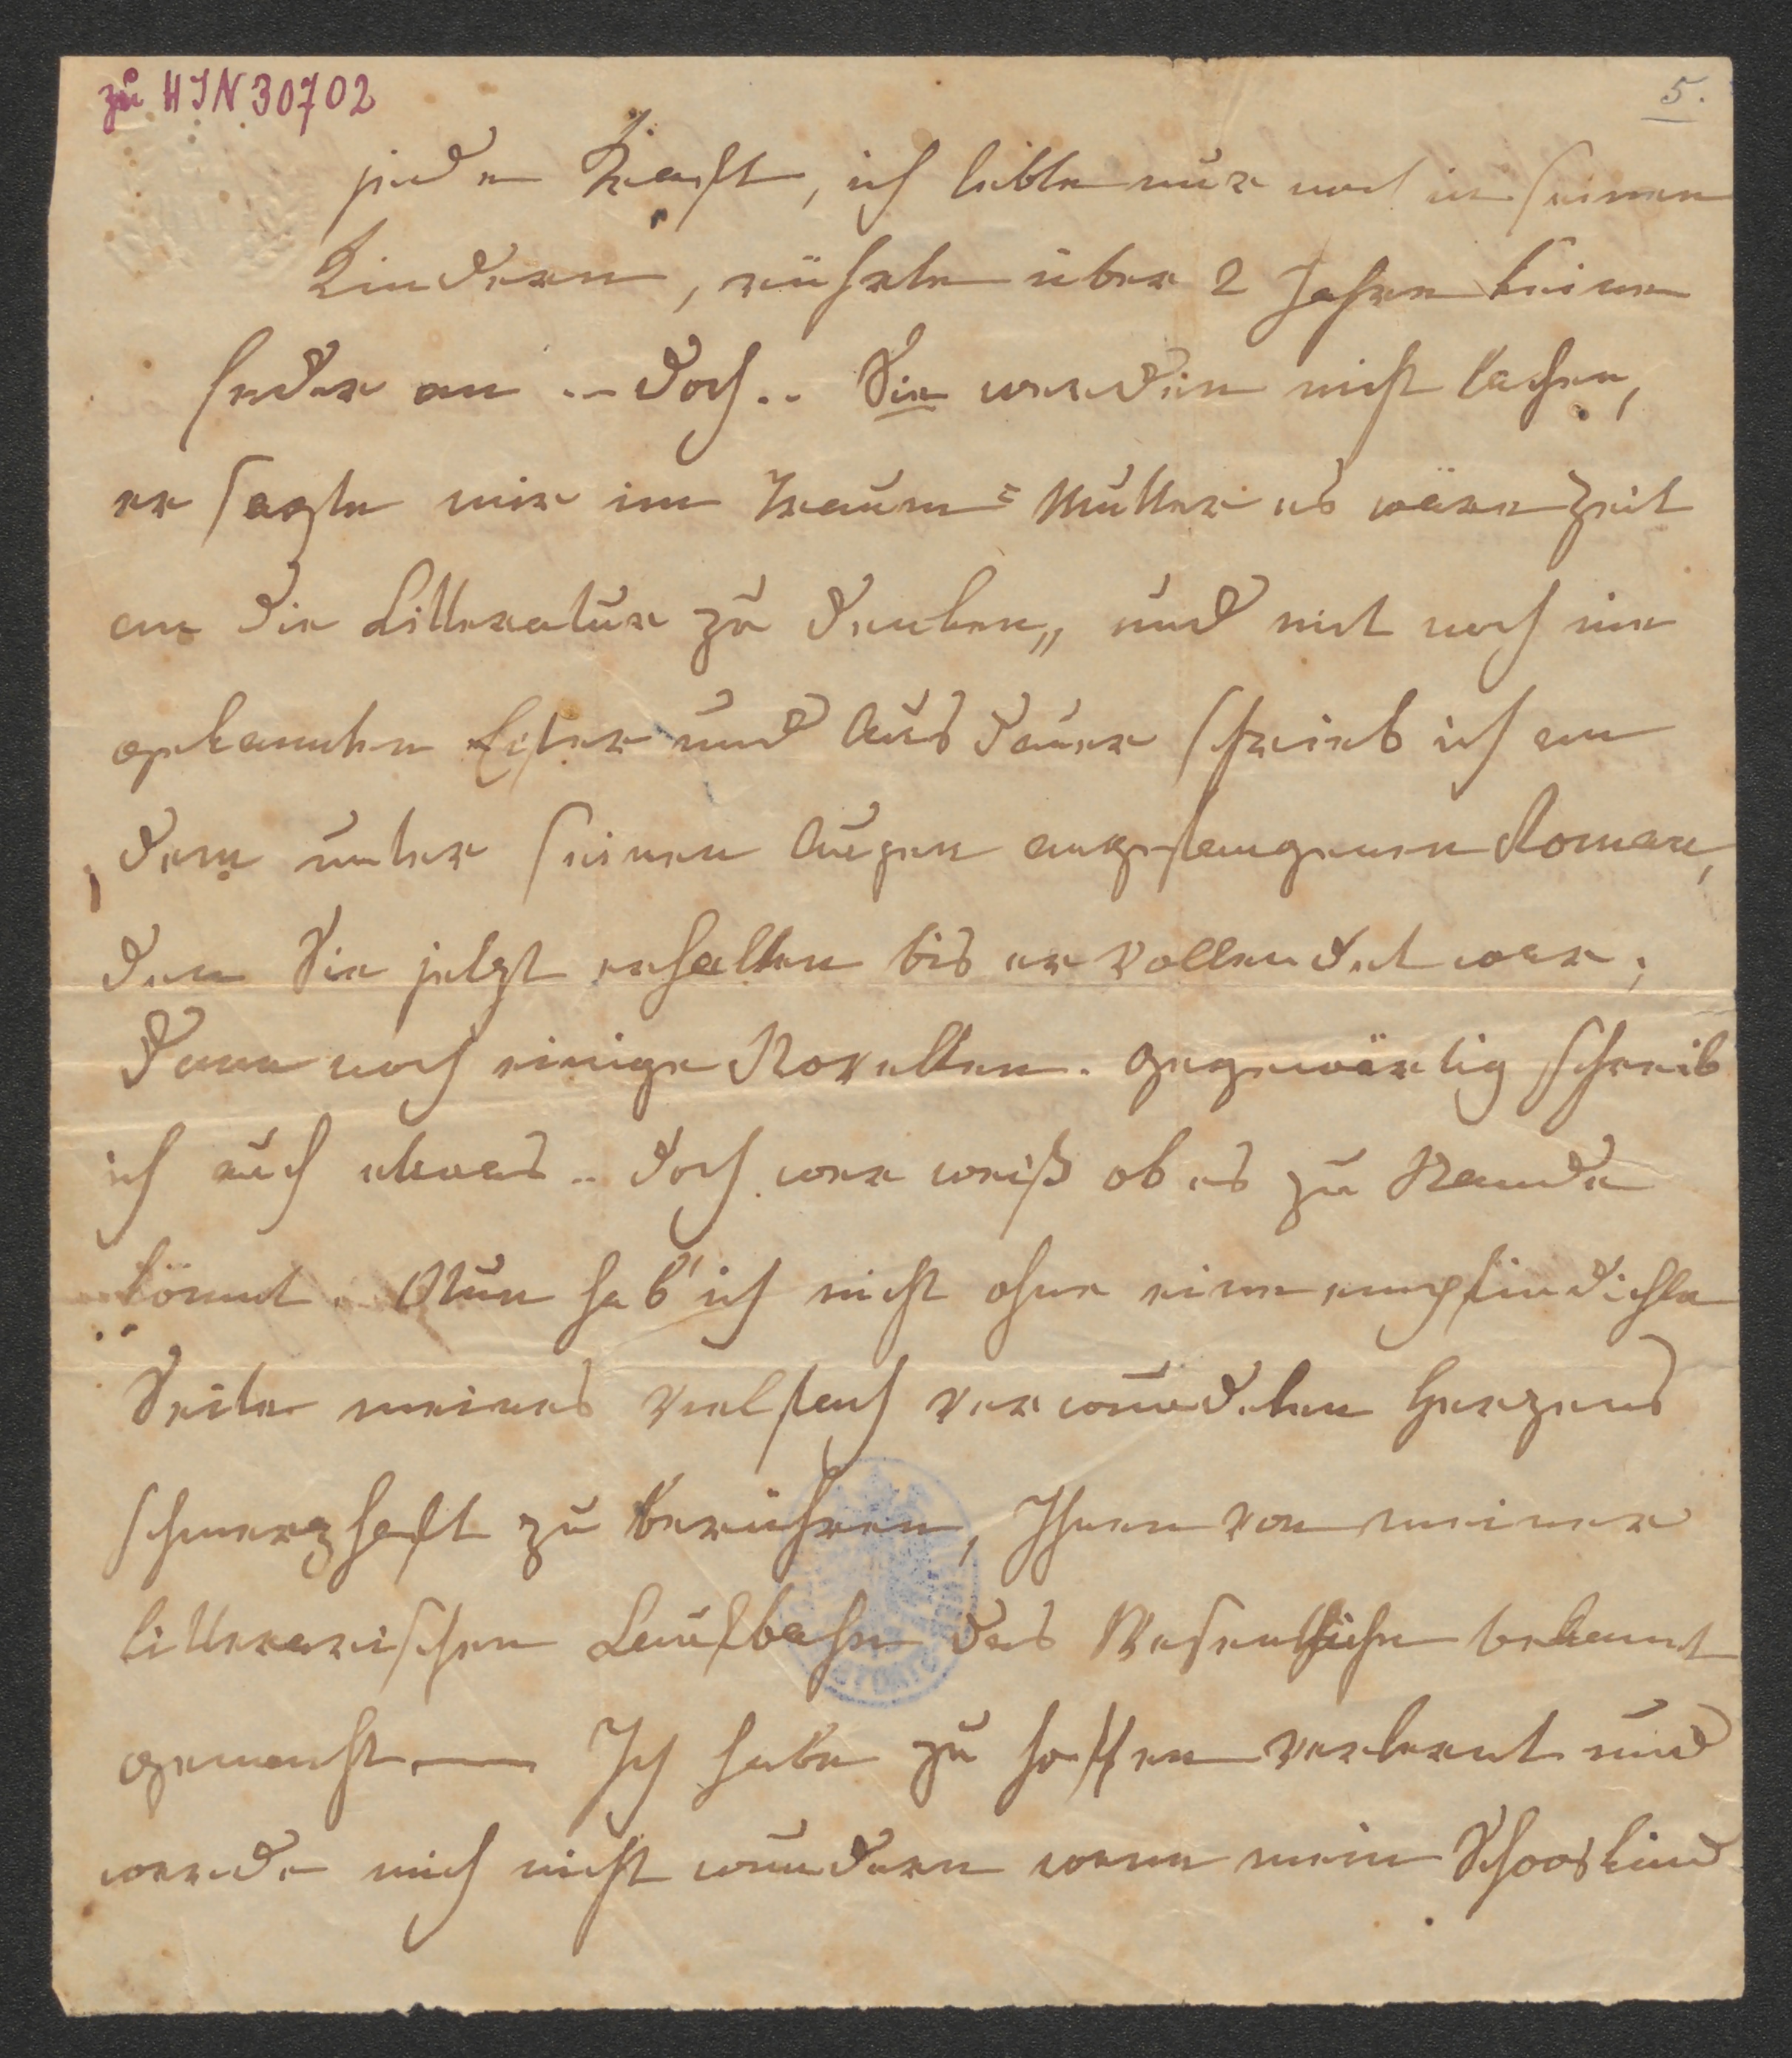 zu HIN 30702
5.
jede Kraft, ich liebte nur noch in seinen
Kindern, rührte über 2 Jahre keine
Feder an .. doch .. Sie werden nicht lachen,
er sagte mir im Traum = Mutter es wäre Zeit
an die Litteratur zu denken„ und mit noch nie
gekannten Eifer und Ausdauer schrieb ich an
dem unter seinen Augen angefangenen Roman,
den Sie jetzt erhalten bis er vollendet war;
dann noch einige Novellen. Gegenwärtig schreib
ich auch etwas .. doch wer weiß ob es zu Stande
kömmt. Nun hab' ich nicht ohne eine empfindichste
Seite meines vielfach verwundeten Herzens
schmerzhaft zu berühren, Ihnen von meiner
litterarischen Laufbahn das Wesentliche bekannt
gemacht — Ich habe zu hoffen verlernt und
werde mich nicht wundern wenn mein Schooskind